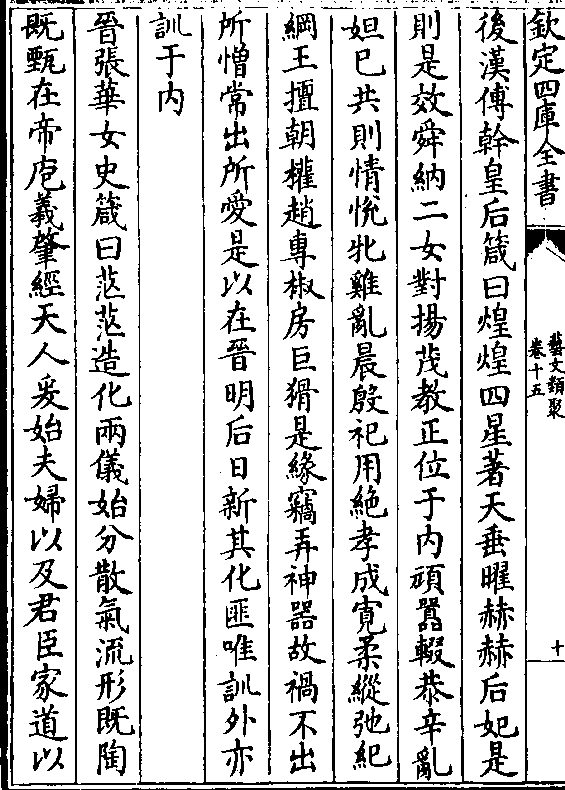 欽定四庫全書
藝文類聚
卷十五
十
後漢傅幹皇后箴曰煌煌四星著天垂曜赫赫后妃是
則是效舜納二女對揚茂教正位于内頑嚚輟恭辛亂
妲已共則情悦牝雞亂晨殷祀用絶孝成寛柔縱弛紀
綱王擅朝權趙専椒房巨猾是緣竊弄神器故禍不出
所憎常出所愛是以在晉明后日新其化匪唯訓外亦
訓于内
晉張華女史箴曰茫茫造化兩儀始分散氣流形既陶
既甄在帝庖羲肇經天人爰始夫婦以及君臣家道以